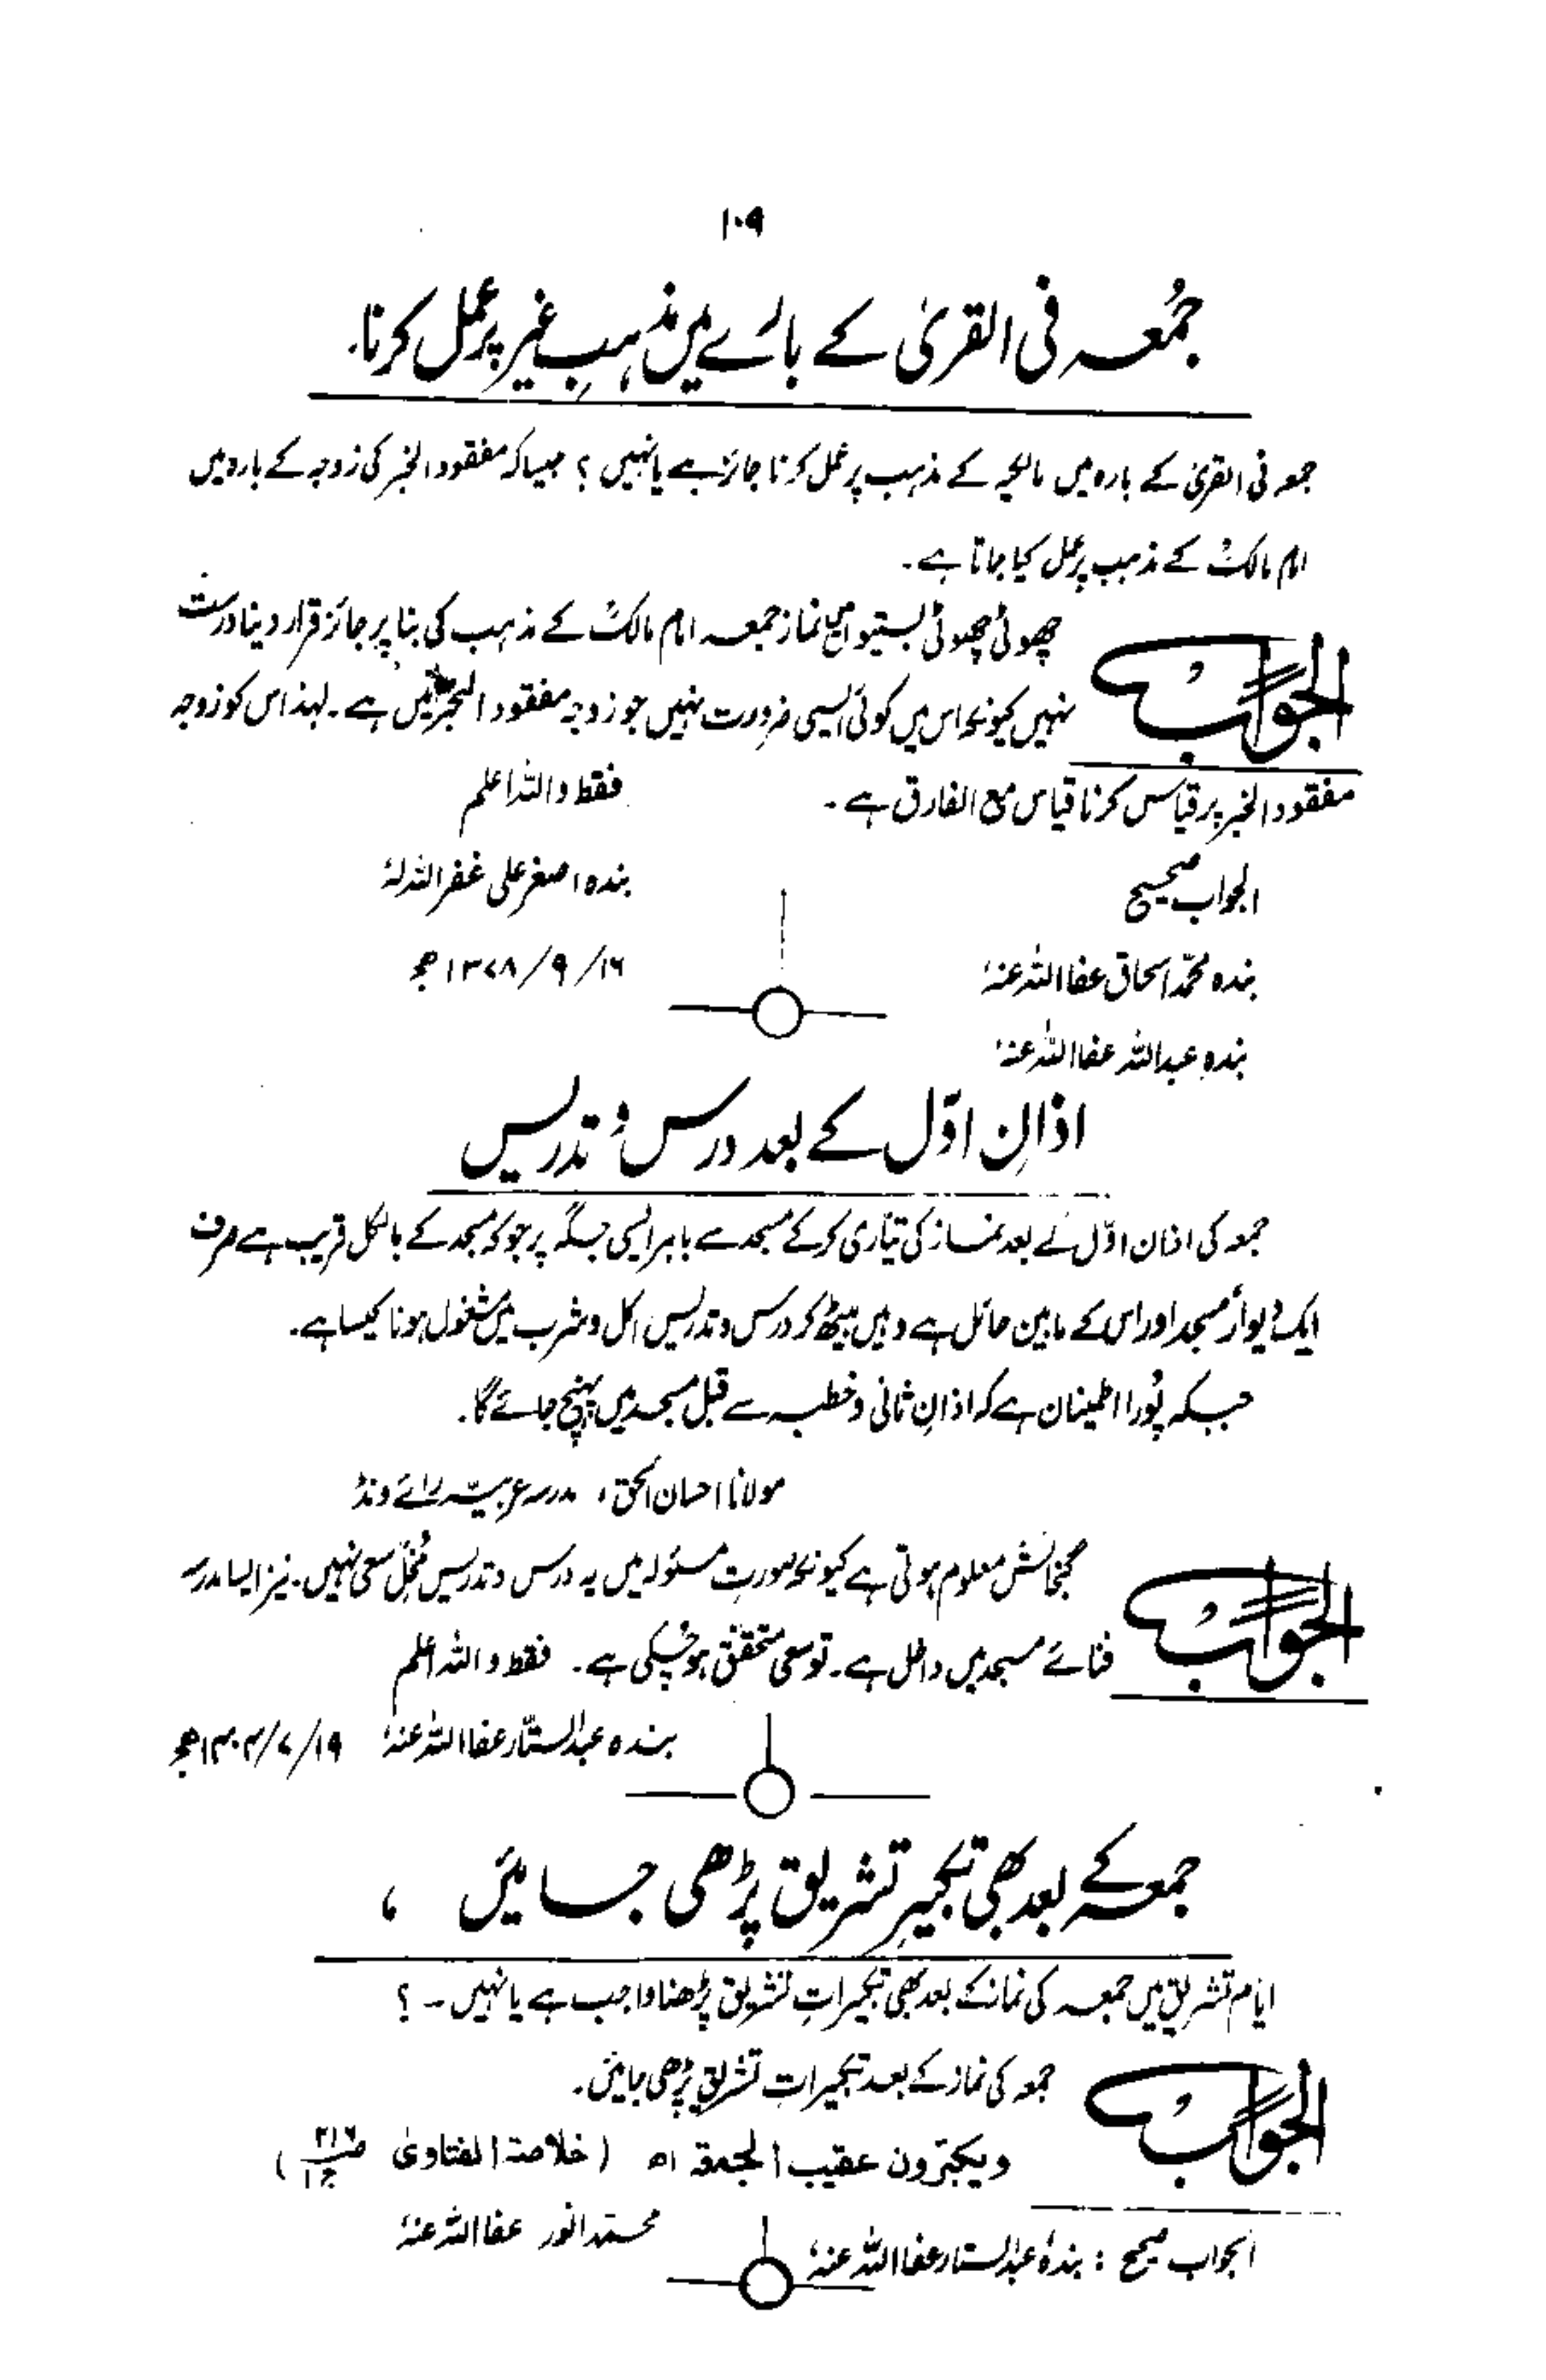 ۱۰۹
جمُعہ فی القریٰ کے بارے میں مذہبِ غیر پر عمل کرنا.
جمعہ فی القریٰ کے بارہ میں مالکیہ کے مذہب پر عمل کرنا جائز ہے یا نہیں ؟ جیسا کہ مفقود الخبر کی زوجہ کے بارہ میں
امام مالکؒ کے مذہب پر عمل کیا جاتا ہے ۔
الجواب
چھوٹی چھوٹی بستیوں میں نماز جمعہ امام مالکؒ کے مذہب کی بنا پر جائز قرار دینا درست
نہیں کیونکہ اس میں کوئی ایسی ضرورت نہیں جو زوجہ مفقود الخبر میں ہے ۔ لہٰذا اس کو زوجہ
مفقود الخبر پر قیاس کرنا قیاس مع الفارق ہے ۔ فقط واللہ اعلم
الجواب صحیح بندہ اصغر علی غفر اللہ لہٗ
بندہ محمّد اسحاق عفا اللہ عنہٗ ۱۶/۹/۱۳۷۸ھ
بندہ عبداللہ عفا اللہ عنہٗ
اذانِ اوّل کے بعد درس و تدریس
جمعہ کی اذان اوّل کے بعد نماز کی تیاری کر کے مسجد سے باہر ایسی جگہ پر جو کہ مسجد کے بالکل قریب ہے صرف
ایک دیوار مسجد اور اس کے مابین حائل ہے وہیں بیٹھ کر درس و تدریس اکل و شرب میں مشغول ہونا کیسا ہے.
جبکہ پُورا اطمینان ہے کہ اذانِ ثانی و خطبہ سے قبل مسجد میں پہنچ جائے گا.
مولانا احسان الحق، مدرسہ عربیہ رائے ونڈ
الجواب
گنجائش معلوم ہوتی ہے کیونکہ صورتِ مسئولہ میں یہ درس و تدریس مُخِلّ سعی نہیں. نیز ایسا مدرسہ
فنائے مسجد میں داخل ہے ۔ تو سعی متحقق ہو چکی ہے ۔ فقط واللہ اعلم
بندہ عبدالستّار عفا اللہ عنہٗ ۱۹/۷/۱۴۰۳ھ
جمعہ کے بعد بھی تکبیرِ تشریق پڑھی جائیں ،
ایّام تشریق میں جمعہ کی نماز کے بعد بھی تکبیراتِ تشریق پڑھنا واجب ہے یا نہیں ۔ ؟
الجواب
جمعہ کی نماز کے بعد تکبیراتِ تشریق پڑھی جائیں.
ویکبّرون عقیب الجمعة اھ (خلاصة الفتاویٰ ص۲۱۶ ج۱)
محمّد انور عفا اللہ عنہٗ
الجواب صحیح : بندہ عبدالستار عفا اللہ عنہٗ